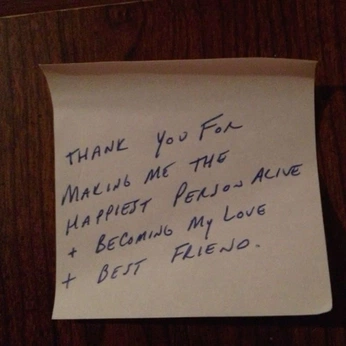 THANK YOU FOR
MAKING ME THE
HAPPIEST PERSON ALIVE
+ BECOMING MY LOVE
+ BEST FRIEND.